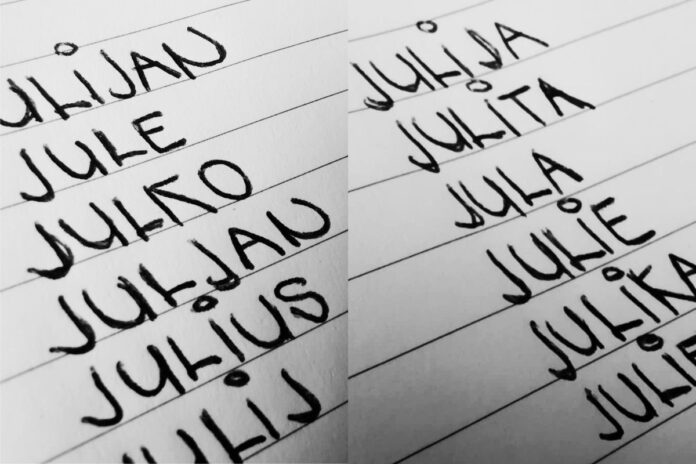 ULIJAN
JULE
JULKO
JULJAN
JULIUS
JULIJ
JULIJA
JULITA
JULA
JULIE
JULIKA
JULIE